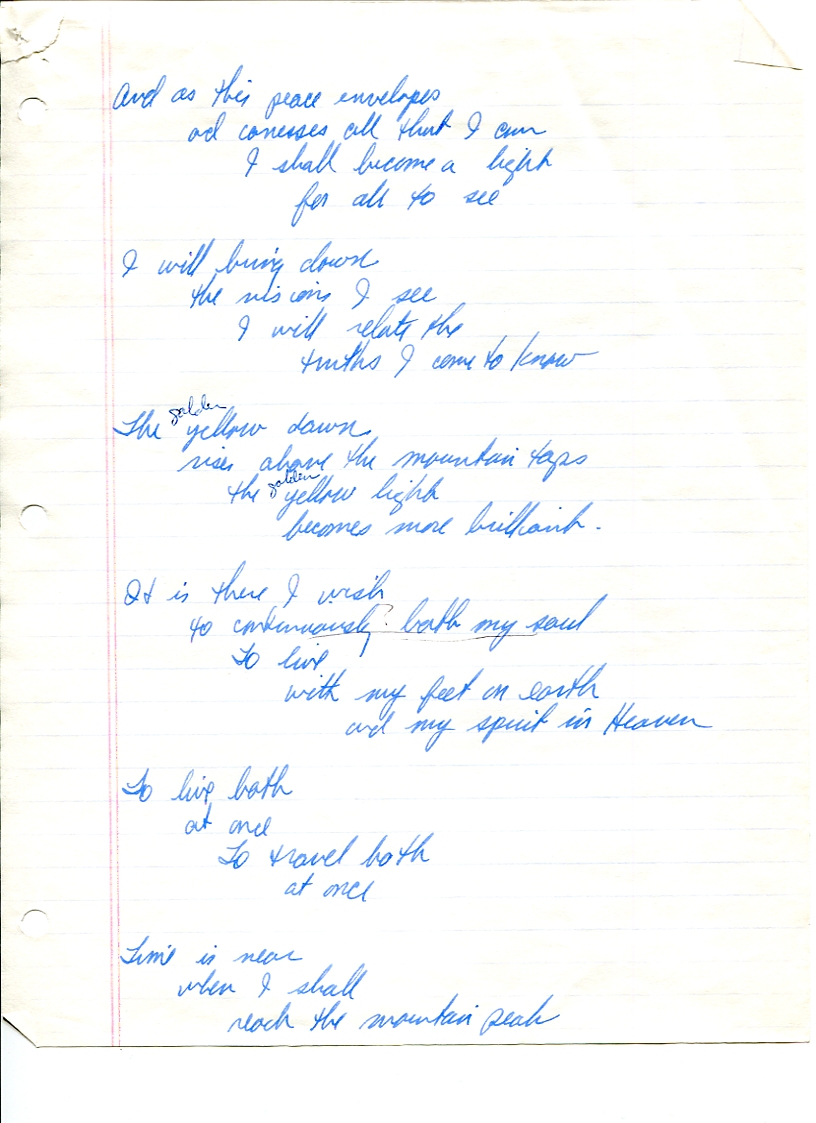 And as this peace envelopes
ad caresses all that I am
I shall become a light
for all to see
I will bring down
the visions I see
I will relate the
truths I come to know
The golden yellow dawn
rises above the mountain tops
the golden yellow light
becomes more brilliant.
It is there I wish
to continuously bath my soul
To live
with my feet on earth
and my spirit in Heaven
To live both
at once
To travel both
at once
Time is near
when I shall
reach the mountain peak